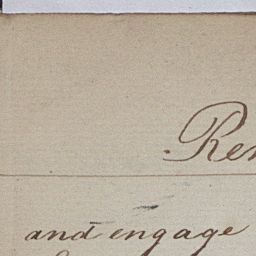 Rem
and engage